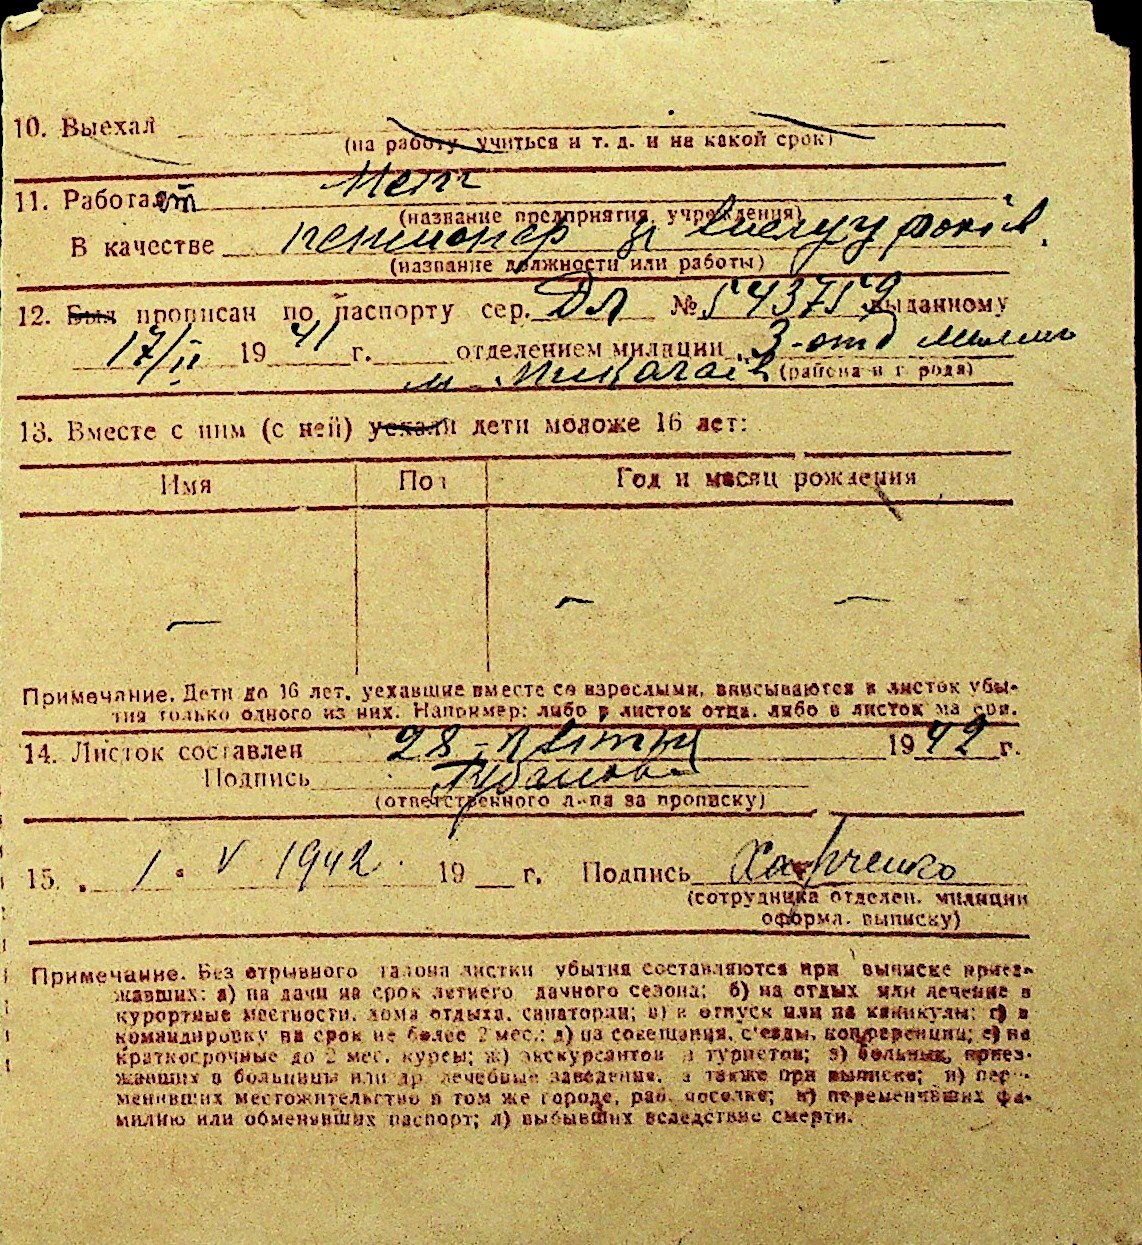 10. Выехал
(на работу, учиться и т. д. и на какой срок)
11. Работает
(название предприятия, учреждения)
В качестве пенсионер за вислугу років.
(название должности или работы)
12. Был прописан по паспорту сер. ДЛ № 543759 выданному
17/II 1941 г. отделением милиции 3-отд милиц
м. Миколаїв (района и города)
13. Вместе с ним (с ней) уехали дети моложе 16 лет:
Имя Пол Год и месяц рождения
Примечание. Дети до 16 лет, уехавшие вместе со взрослыми, вписываются в листок убы-
тия только одного из них. Например: либо в листок отца, либо в листок матери.
14. Листок составлен 28 - квітня 1942 г.
Подпись
(ответственного лица за прописку)
15. 1. V 1942. 19 г. Подпись Харченко
(сотрудника отделен. милиции
оформл. выписку)
Примечание. Без отрывного талона листки убытия составляются при выписке приез-
жавших: а) на дачи на срок летнего дачного сезона; б) на отдых или лечение в
курортные местности, дома отдыха, санатории; в) в отпуск или на каникулы; г) в
командировку на срок не более 2 мес.; д) на совещания, с'езды, конференции; е) на
краткосрочные до 2 мес. курсы; ж) экскурсантов и туристов; з) больных, приез-
жавших в больницы или др. лечебные заведения, а также при выписке; и) пере-
менивших местожительство в том же городе, раб. поселке; к) переменивших фа-
милию или обменявших паспорт; л) выбывших вследствие смерти.